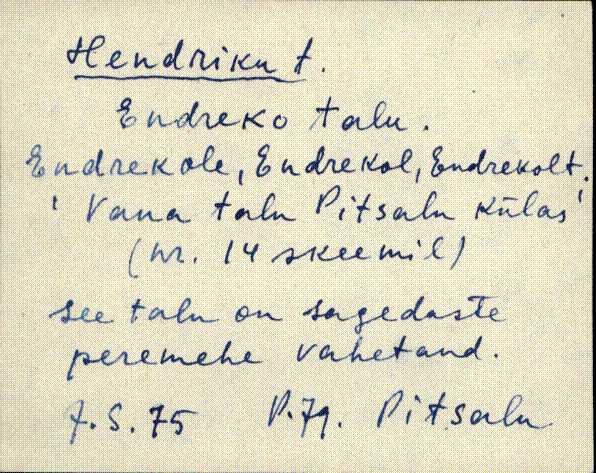 Hendriku t.
Endreko talu.
Endrekole, Endrekol, Endrekolt.
' Vana talu Pitsalu külas '
(nr. 14 skeemil)
see talu on sagedaste
peremehe vahetand.
7.S.75 P.79. Pitsalu